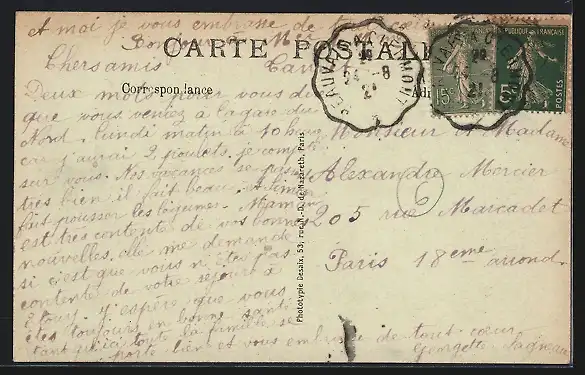 et moi je vous embrasse de tout cœur
Bonjour à
CARTE POSTALE
Correspondance
BEAUVAIS A CLERMONT
29
-8
21
BEAUVAIS A CLERMONT
29
-8
21
RÉPUBLIQUE FRANÇAISE
POSTES
15c
Chers amis
Deux mots pour vous dire
que vous veniez à la gare du
Nord, lundi matin à 10 heures
car j'aurai 2 poulets je compte
sur vous. Nos vacances se passent
très bien il fait beau
fait pousser les légumes. Maman
est très contente de vos bonnes
nouvelles, elle me demande
si c'est que vous n'êtes pas
contents de votre séjour à
J'espère que vous
êtes toujours en bonne santé
tant qu'ici toute la famille se
porte bien et vous embrasse de tout cœur
Georgette
Phototypie Desaix, 53, rue N.-D. de Nazareth, Paris
Monsieur et Madame
Alexandre Mercier
205 rue Marcadet
Paris 18eme arrond.